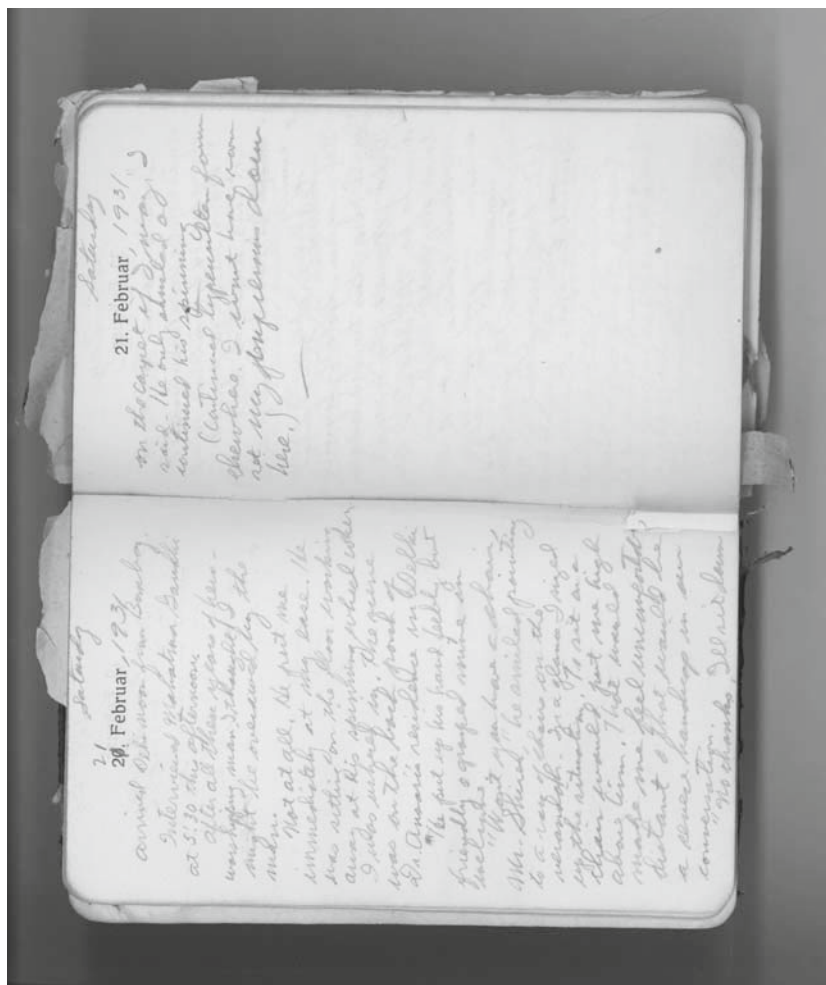 Saturday
21
20. Februar 1931
arrived Delhi noon from Bombay.
Interviewed Mahatma Gandhi
at 5:30 this afternoon.
after all these years of hero-
worshipping man I thought I
might be overawed by the
man.
Not at all. He put me
immediately at my ease. He
was sitting on the floor working
away at his spinning wheel when
I was ushered in. The scene
was on the back porch of
Dr. Ansari's residence in Delhi
He put up his hand feebly but
friendly & grasped mine in
welcome.
"Won't you have a chair,
Mr. Shirer," he smiled pointing
to a row of chairs on the
verandah. In a glance I sized
up the situation. To sit on a
chair would put me high
above him. That would
made me feel uncomfortably
distant & that would be
a severe handicap in our
conversation.
"No thanks, I'll sit down
Saturday
21. Februar, 1931
on the carpet if I may, I
said. He only smiled and
continued his spinning
(Continued typewritten form
elsewhere. I don't have room
set my impressions down
here.)